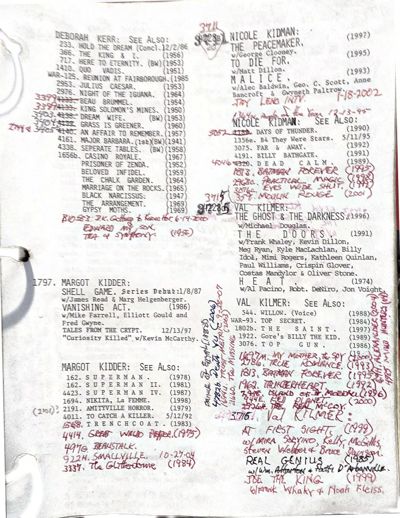 DEBORAH KERR: SEE ALSO:
233. HOLD THE DREAM (Concl.12/2/86
366. THE CLOONEY, I. (1956)
717. HERE TO ETERNITY. (BW)(1953)
1410. QUO VADIS. (1951)
WAR-125. REUNION AT FAIRBOROUGH.(1985
2953. JULIUS CAESAR. (1953)
2976. NIGHT OF THE IGUANA. (1964)
BEAU BRUMMEL. (1954)
KING SOLOMON'S MINES. (1950)
DREAM WIFE. (BW)(1953)
GRASS IS GREENER. (1960)
4140. AN AFFAIR TO REMEMBER.(1957)
4161. MAJOR BARBARA.(1st)BW(1941)
4338. SEPERATE TABLES. (BW)(1958)
1656b. CASINO ROYALE. (1967)
PRISONER OF ZENDA. (1952)
BELOVED INFIDEL. (1959)
THE CHALK GARDEN. (1964)
MARRIAGE ON THE ROCKS.(1965)
BLACK NARCISSUS. (1947)
THE ARRANGEMENT. (1969)
GYPSY MOTHS. (1969)
EDWARD MY SON.
TEA & SYMPATHY. (1956)
1797. MARGOT KIDDER:
SHELL GAME. Series Debut:1/8/87
w/James Read & Marg Helgenberger.
VANISHING ACT. (1986)
w/Mike Farrell, Elliott Gould and
Fred Gwyne.
TALES FROM THE CRYPT. 12/13/97
"Curiosity Killed" w/Kevin McCarthy.
MARGOT KIDDER: SEE ALSO:
162. SUPERMAN. (1978)
162. SUPERMAN II. (1981)
4423. SUPERMAN IV. (1987)
1694. NIKITA, La FEMME. (1998)
2191. AMITYVILLE HORROR. (1979)
4011. TO CATCH A KILLER. 5/12/92
TRENCHCOAT. (1983)
4414. GREAT WALDO PEPPER.(1975)
4976. BEANSTALK.
922H. SMALLVILLE. 10-27-04
3337. The Glitterdome (1984)
NICOLE KIDMAN: (1997)
THE PEACEMAKER,
w/George Clooney. (1995)
TO DIE FOR,
w/Matt Dillon. (1993)
MALICE,
w/Alec Baldwin, Geo. C. Scott, Anne
Bancroft & Gwyneth Paltrow.
NICOLE KIDMAN: SEE ALSO:
DAYS OF THUNDER. (1990)
1156e. 84 They Were Stars. 5/11/95
3075. FAR & AWAY. (1992)
4191. BILLY BATHGATE. (1991)
DEAD CALM. (1989)
1813. BATMAN FOREVER (1995)
PRACTICAL MAGIC (1998)
EYES WIDE SHUT. (1999)
MOULIN ROUGE (2001)
3715
VAL KILMER:
THE GHOST & THE DARKNESS. (1996)
w/Michael Douglas.
THE DOORS (1991)
w/Frank Whaley, Kevin Dillon,
Meg Ryan, Kyle MacLachlan, Billy
Idol, Mimi Rogers, Kathleen Quinlan,
Paul Williams, Crispin Glover,
Costas Mandylor & Oliver Stone.
HEAT (1974)
w/Al Pacino, Robt. DeNiro, Jon Voight
VAL KILMER: SEE ALSO:
544. WILLOW. (Voice) (1988)
WAR-93. TOP SECRET. (1984)
1802b. THE SAINT. (1997)
1922. Gore's BILLY THE KID. (1989)
3076. TOP GUN. (1986)
TRUE ROMANCE (1993)
1813. BATMAN FOREVER (1995)
THUNDERHEART. (1992)
RED PLANET (2000)
3715. VAL KILMER:
AT FIRST SIGHT, (1999)
w/MIRA SORVINO, Kelly McGillis,
Steven Weber & Bruce Davison.
REAL GENIUS (1985)
w/Wm. Atherton & Patti D'Arbanville.
JOE THE KING (1999)
w/Frank Whaley & Noah Fleiss.